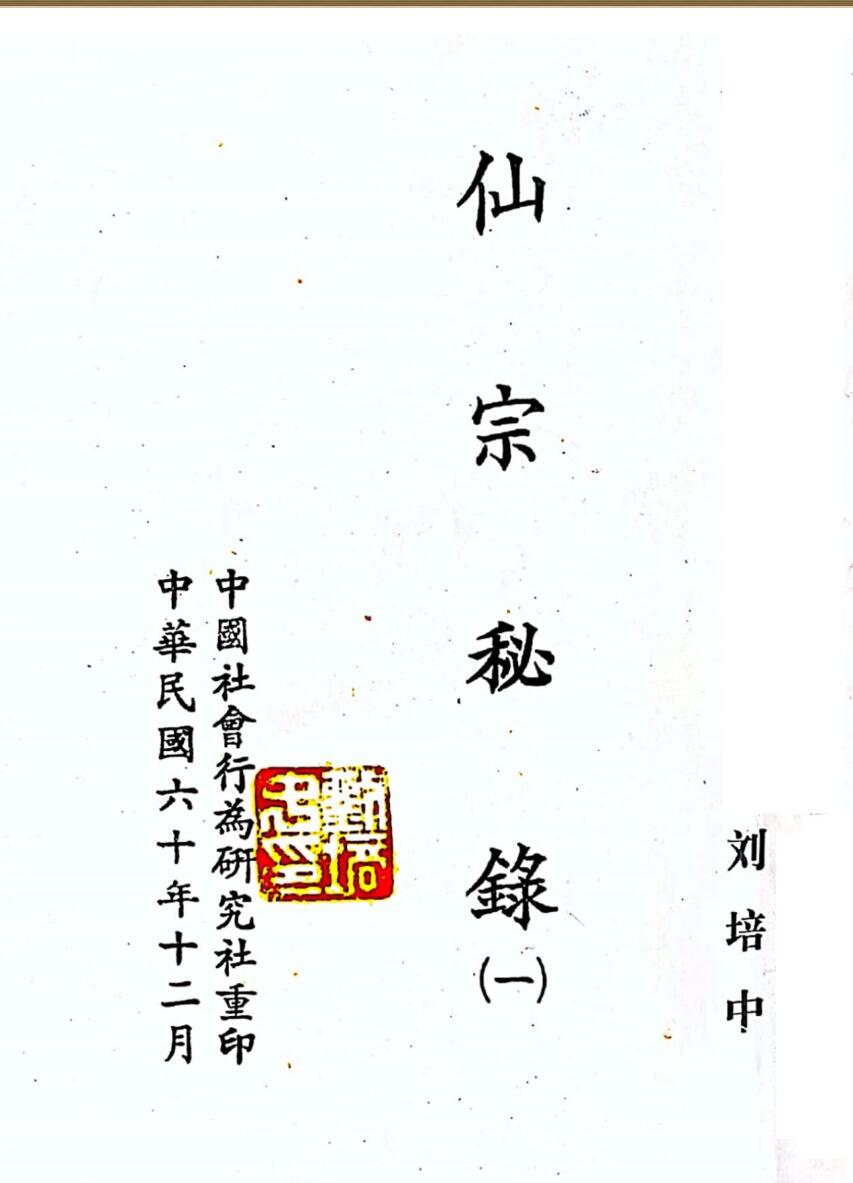 刘培中
仙宗秘錄(一)
中國社會行為研究社重印
中華民國六十年十二月